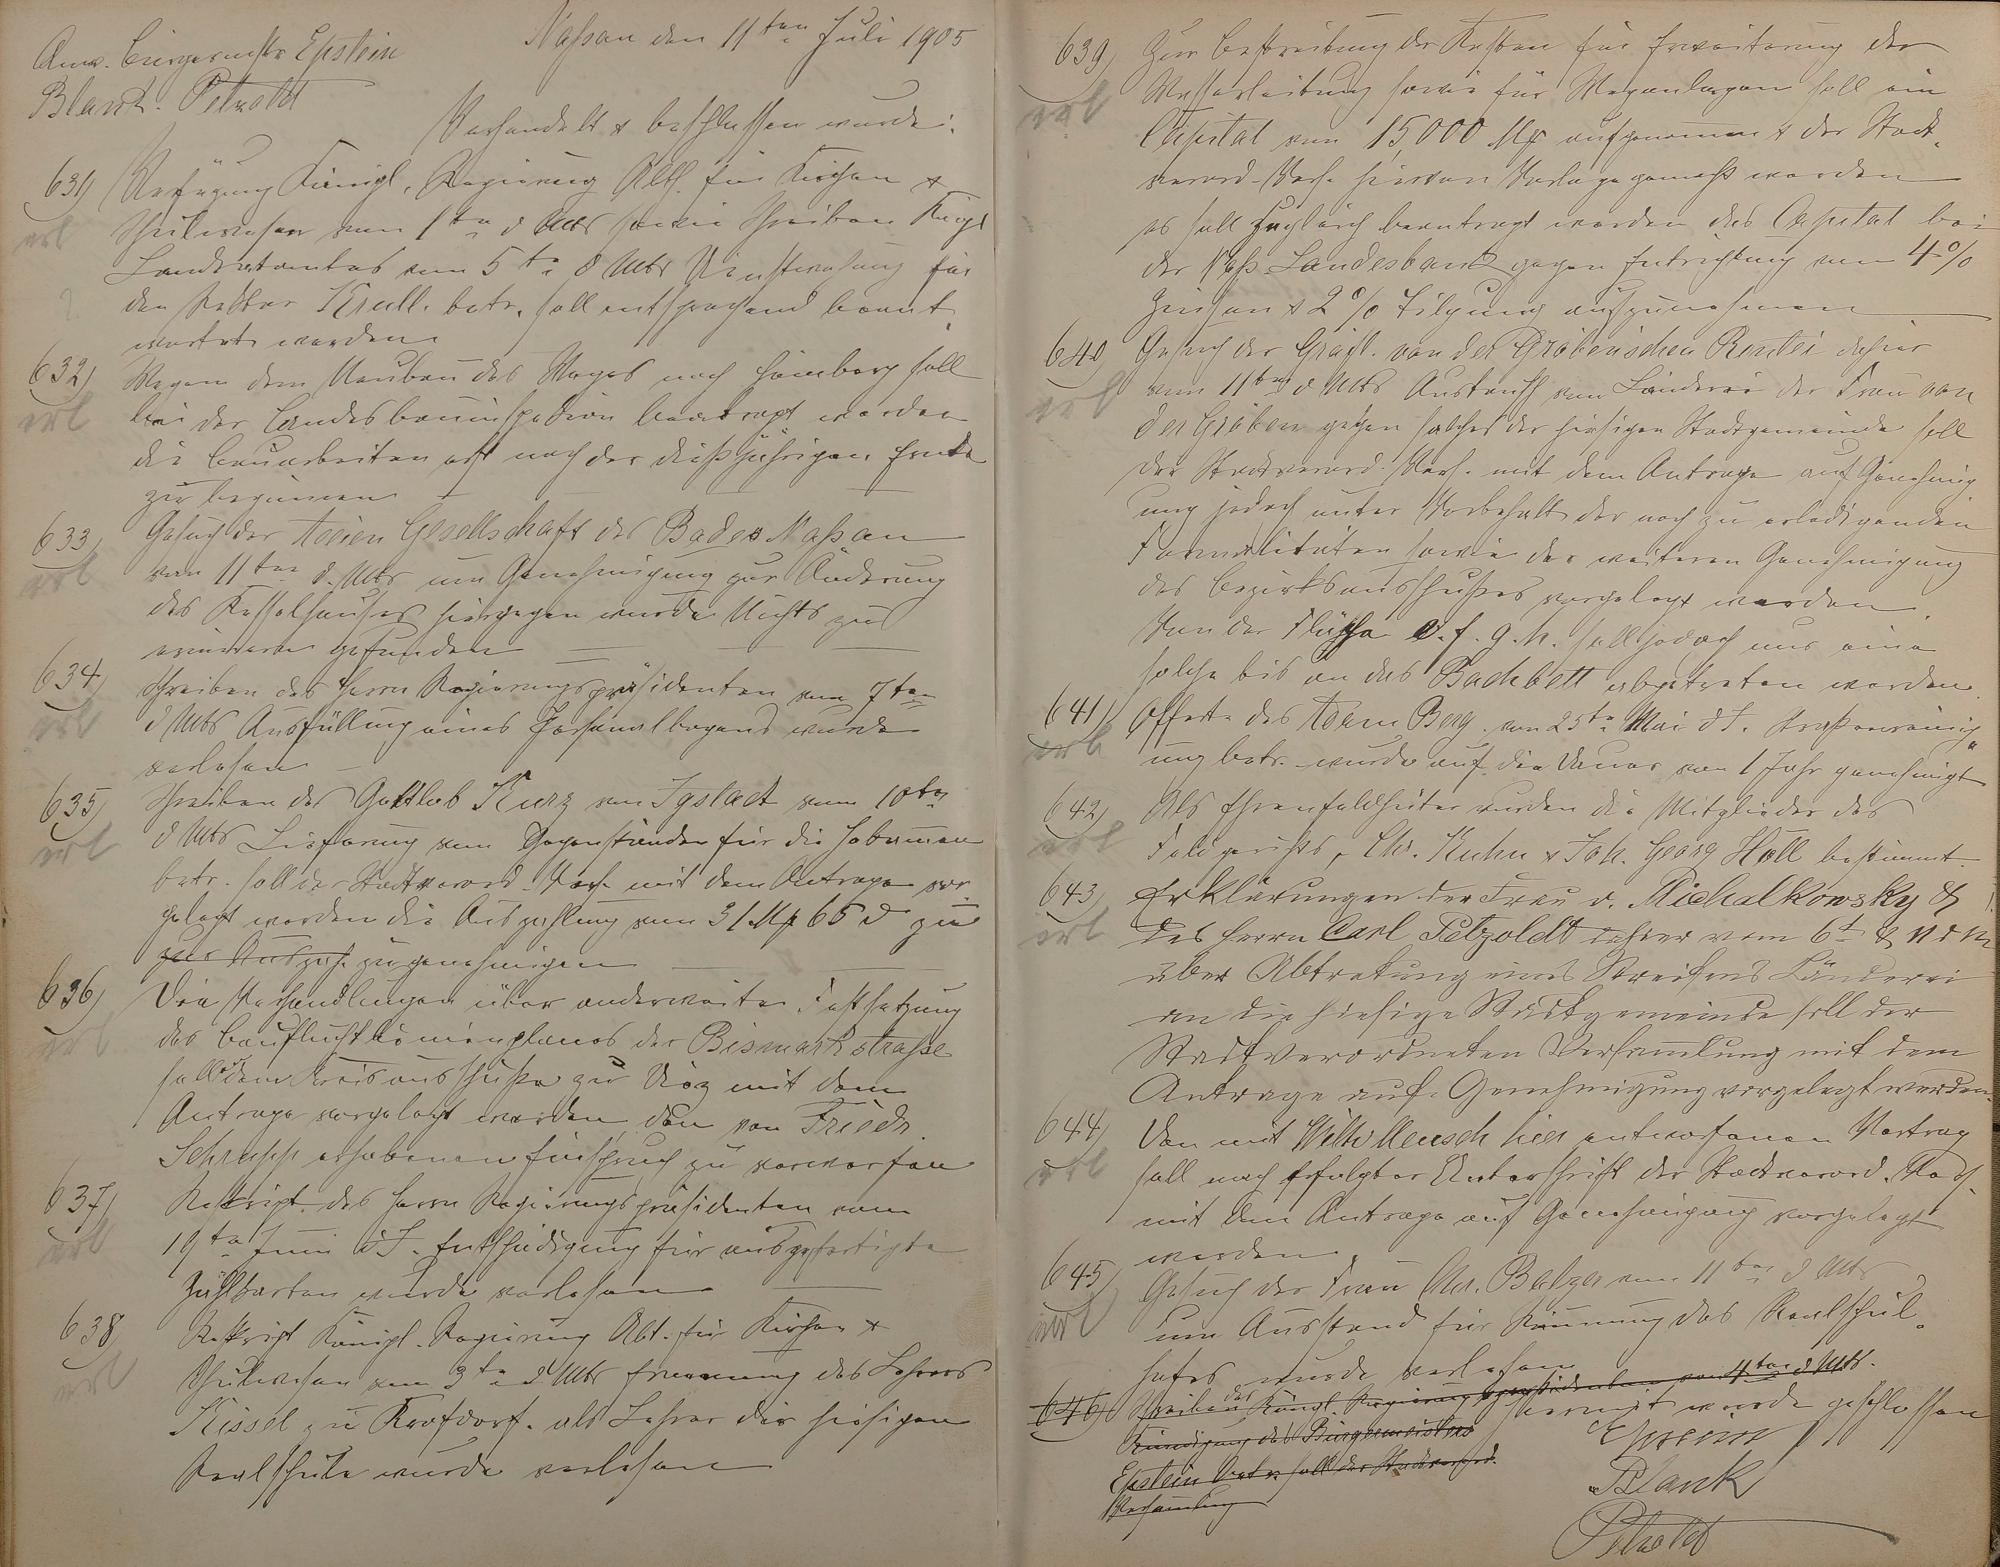 Anw. Bürgermstr Epstein
Blank. Petzoldt
Naßau den 11ten Juli 1905
Verhandelt & beschlossen wurde:
631) Verfügung Königl. Regierung Abth. für Kirchen &
erl
Schulwesen vom 1ten d Mts sowie Schreiben Königl
Landratamtes vom 5ten d Mts Dienstweisung für
den Rektor Krull. betr. soll entsprechend beant
wortet werden
632) Wegen dem Neubau des Weges nach Hömberg soll
erl
bei der Landesbauinspektion beantragt werden
die Bauarbeiten erst nach der dießjährigen Ernte
zu beginnen
633) Gesuch der Actien Gesellschaft des Bades Naßau
erl
vom 11ten d. Mts um Genehmigung zur Änderung
des Kesselhauses hiergegen wurde Nichts zu
erinnern gefunden
634) Schreiben des Herrn Regierungspräsidenten vom 7ten
erl
d Mts Ausfüllung eines Personalbogens wurde
verlesen
635) Schreiben des Gottlob Kurz von Igstadt vom 10ten
erl
d Mts Lieferung von Gegenständen für die Hebammen
betr. soll der Stadtverord. Vers. mit dem Antrage vor
gelegt werden die Auszahlung von 31 Mk 65 d zu
zur Auszah. zu genehmigen
636) Die Verhandlungen über anderweite Festsetzung
erl
des Baufluchtlinienplanes der Bismarkstraße
soll dem Kreisausschuße zu Diez mit dem
Antrage vorgelegt werden den von Friedr.
Schrupp erhobenen Einspruch zu verwerfen
637) Reskript des Herrn Regierungspräsidenten vom
erl
19ten Juni d J. Entschädigung für ausgefertigte
Zählkarten wurde verlesen
638) Reskript Königl. Regierung Abt. für Kirchen &
erl
Schulwesen vom 3ten d Mts Ernennung des Lehrers
Kissel zu Krofdorf. als Lehrer der hiesigen
Realschule wurde verlesen
639) Zur Bestreitung der Kosten für Erweiterung der
erl
Wasserleitung sowie für Weganlagen soll ein
Capital von 15,000 Mk aufgenommen & der Stadt
verord. Vers. hiervon Vorlage gemacht werden
es soll zugleich beantragt werden das Capital bei
der Naß. Landesbank gegen Entrichtung von 4%
Zinsen & 2% Tilgung aufzunehmen
640) Gesuch der Gräfl. von der Gröbenschen Rentei dahier
erl
vom 11ten d Mts Austausch von Länderei der Frau von
der Gröben gegen solches der hiesigen Stadtgemeinde soll
der Stadtverord. Vers. mit dem Antrage auf Genehmig
ung jedoch unter Vorbehalt der noch zu erledigenden
Formalitäten sowie der weiteren Genehmigung
des Bezirksausschußes vorgelegt werden
Von der Fläche e. f. g. h. soll jedoch nur eine
solche bis an das Bachbett abgetreten werden.
641) Offerte des Adam Berg. vom 25ten Mai d J. Straßenreinig
erl
ung betr. wurde auf die Dauer von 1 Jahr genehmigt
642) Als Ehrenfeldhüter wurden die Mitglieder des
erl
Feldgerichts, Chr. Kuhn & Joh. Georg Höll bestimmt
643) Erklärungen der Frau v. Michalkowsky &
erl
des Herrn Carl Petzoldt dahier vom 6t & 11 d M
über Abtretung eines Streifens Länderei
an die hiesige Stadtgemeinde soll der
Stadtverordneten Versammlung mit dem
Antrage auf Genehmigung vorgelegt werden.
644) Den mit Wilh. Mensch hier entworfenen Vertrag
erl
soll nach erfolgter Unterschrift der Stadtverord. Vers.
mit dem Antrage auf Genehmigung vorgelegt
werden.
645) Gesuch der Frau Chr. Balzer vom 11ten d Mts
erl
um Ausstand für Räumung des Realschul
hofes wurde verlesen
646) Schreiben des Königl. Regierungspräsidenten vom 4ten d Mts.
Kündigung des Bürgermeisters
Epstein betr. soll der Stadtverord.
Versammlung
hiermit wurde geschlossen
Epstein
Blank
Petzoldt